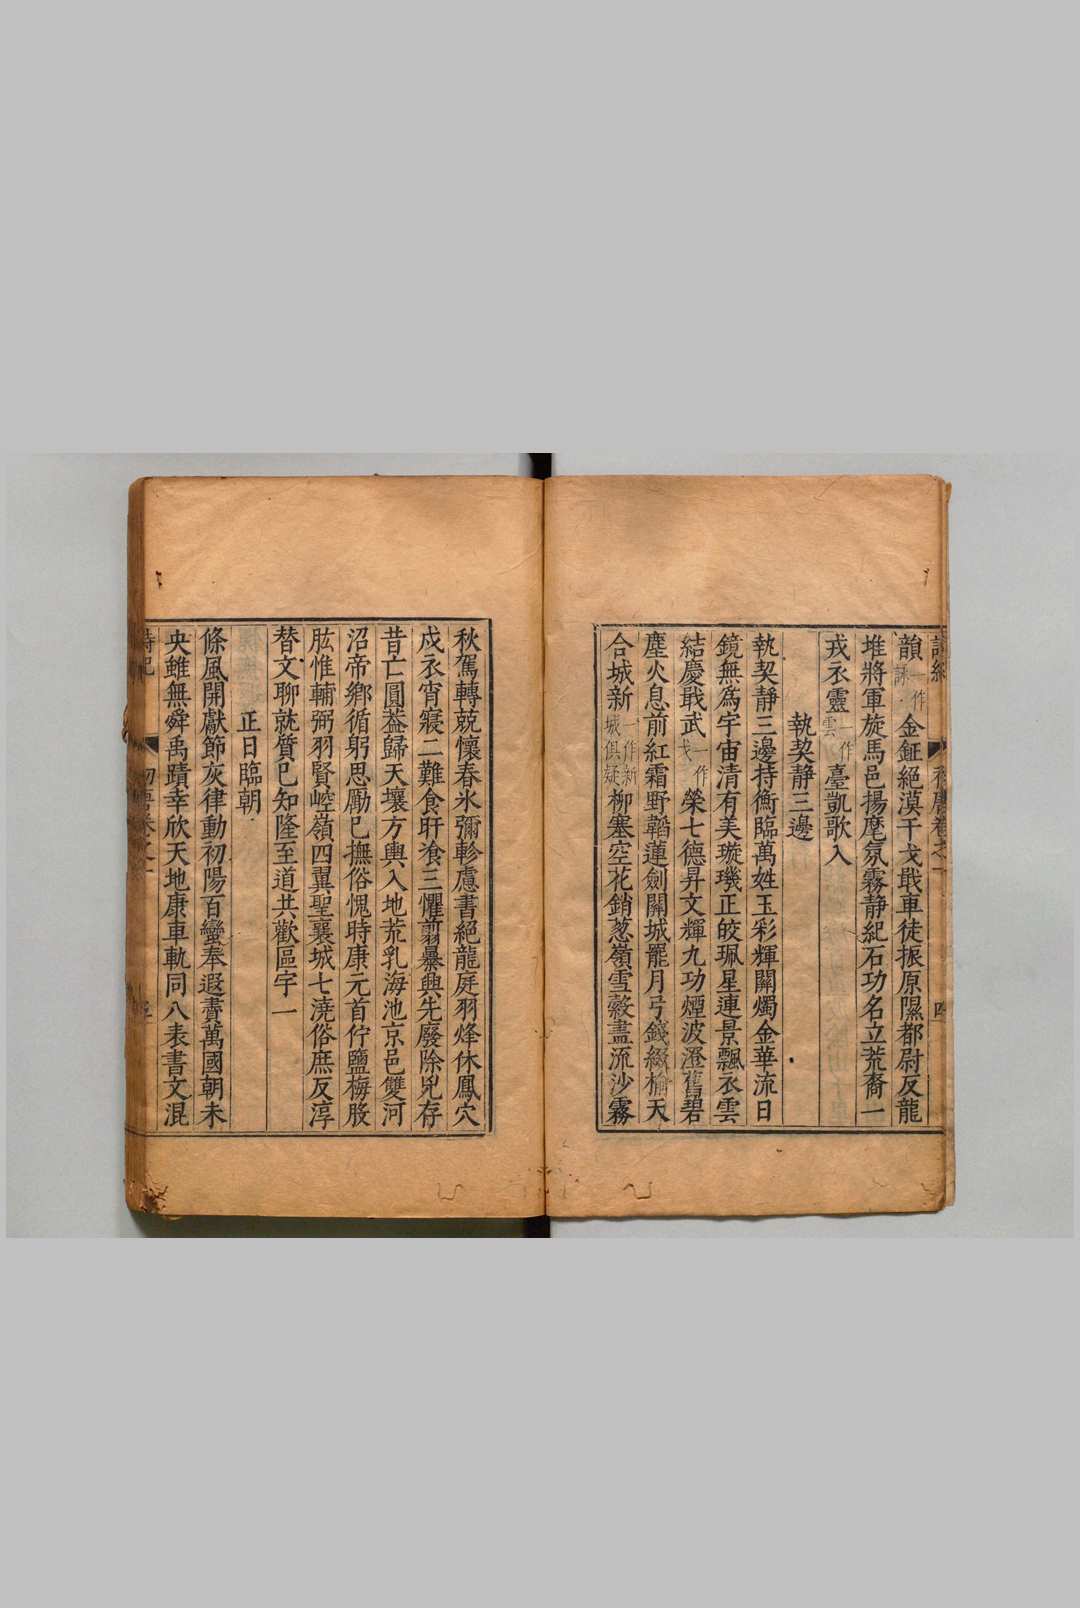 韻一作詠金鉦絕漠干戈戢車徒振原隰都尉反龍
堆將軍旋馬邑揚麾氛霧静紀石功名立荒裔一
戎衣靈一作雲臺凱歌入
執契静三邊
執契靜三邊持衡臨萬姓玉彩輝關燭金華流日
鏡無爲宇宙清有美璇璣正皎珮星連景飄衣雲
結慶戢武一作戈榮七德昇文輝九功煙波澄舊碧
塵火息前紅霜野韜蓮劍關城罷月弓錢綴榆天
合城新一作新城俱疑柳塞空花銷葱嶺雪縠盡流沙霧
秋駕轉兢懷春氷彌軫慮書絕龍庭羽烽休鳳穴
戍衣宵寢二難食旰飡三懼翦暴興先廢除兇存
昔亡圓葢歸天壤方輿入地荒乳海池京邑雙河
沼帝鄉循躬思勵已撫俗愧時康元首佇鹽梅股
肱惟輔弼羽賢崆嶺四翼聖襄城七澆俗庶反淳
替文聊就質已知隆至道共歡區宇一
正日臨朝
條風開獻節灰律動初陽百蠻奉遐賮萬國朝未
央雖無舜禹蹟幸欣天地康車軌同八表書文混